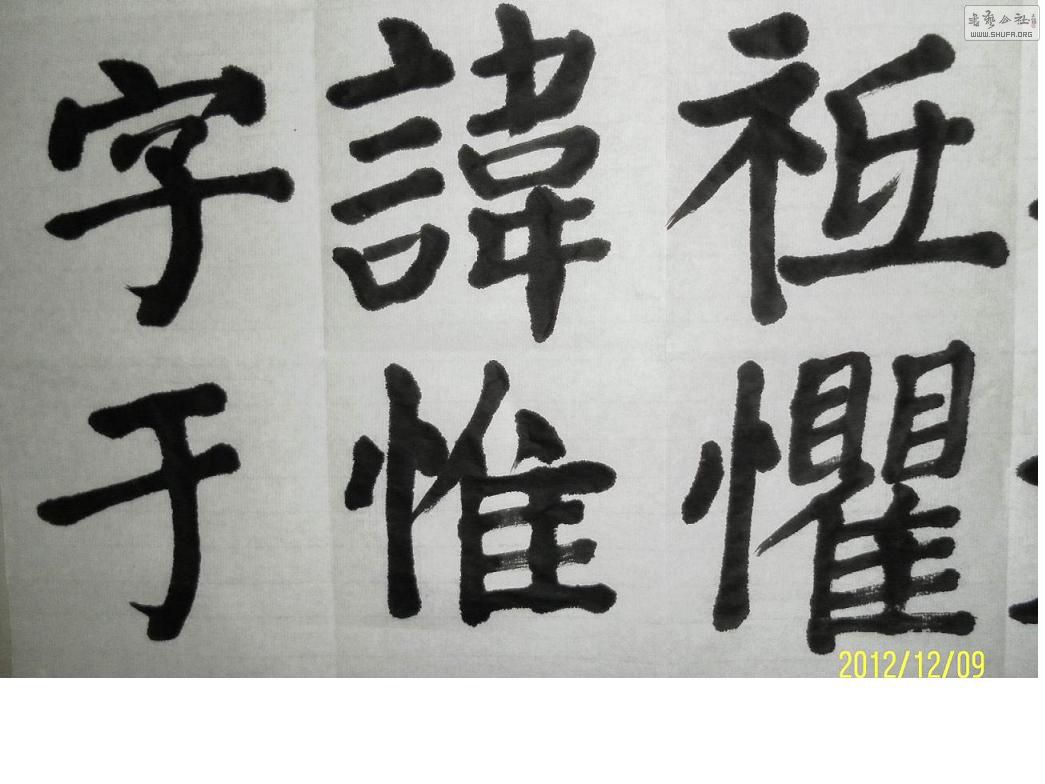 祗懼
諱惟
字于
書藝公社
WWW.SHUFA.ORG
2012/12/09